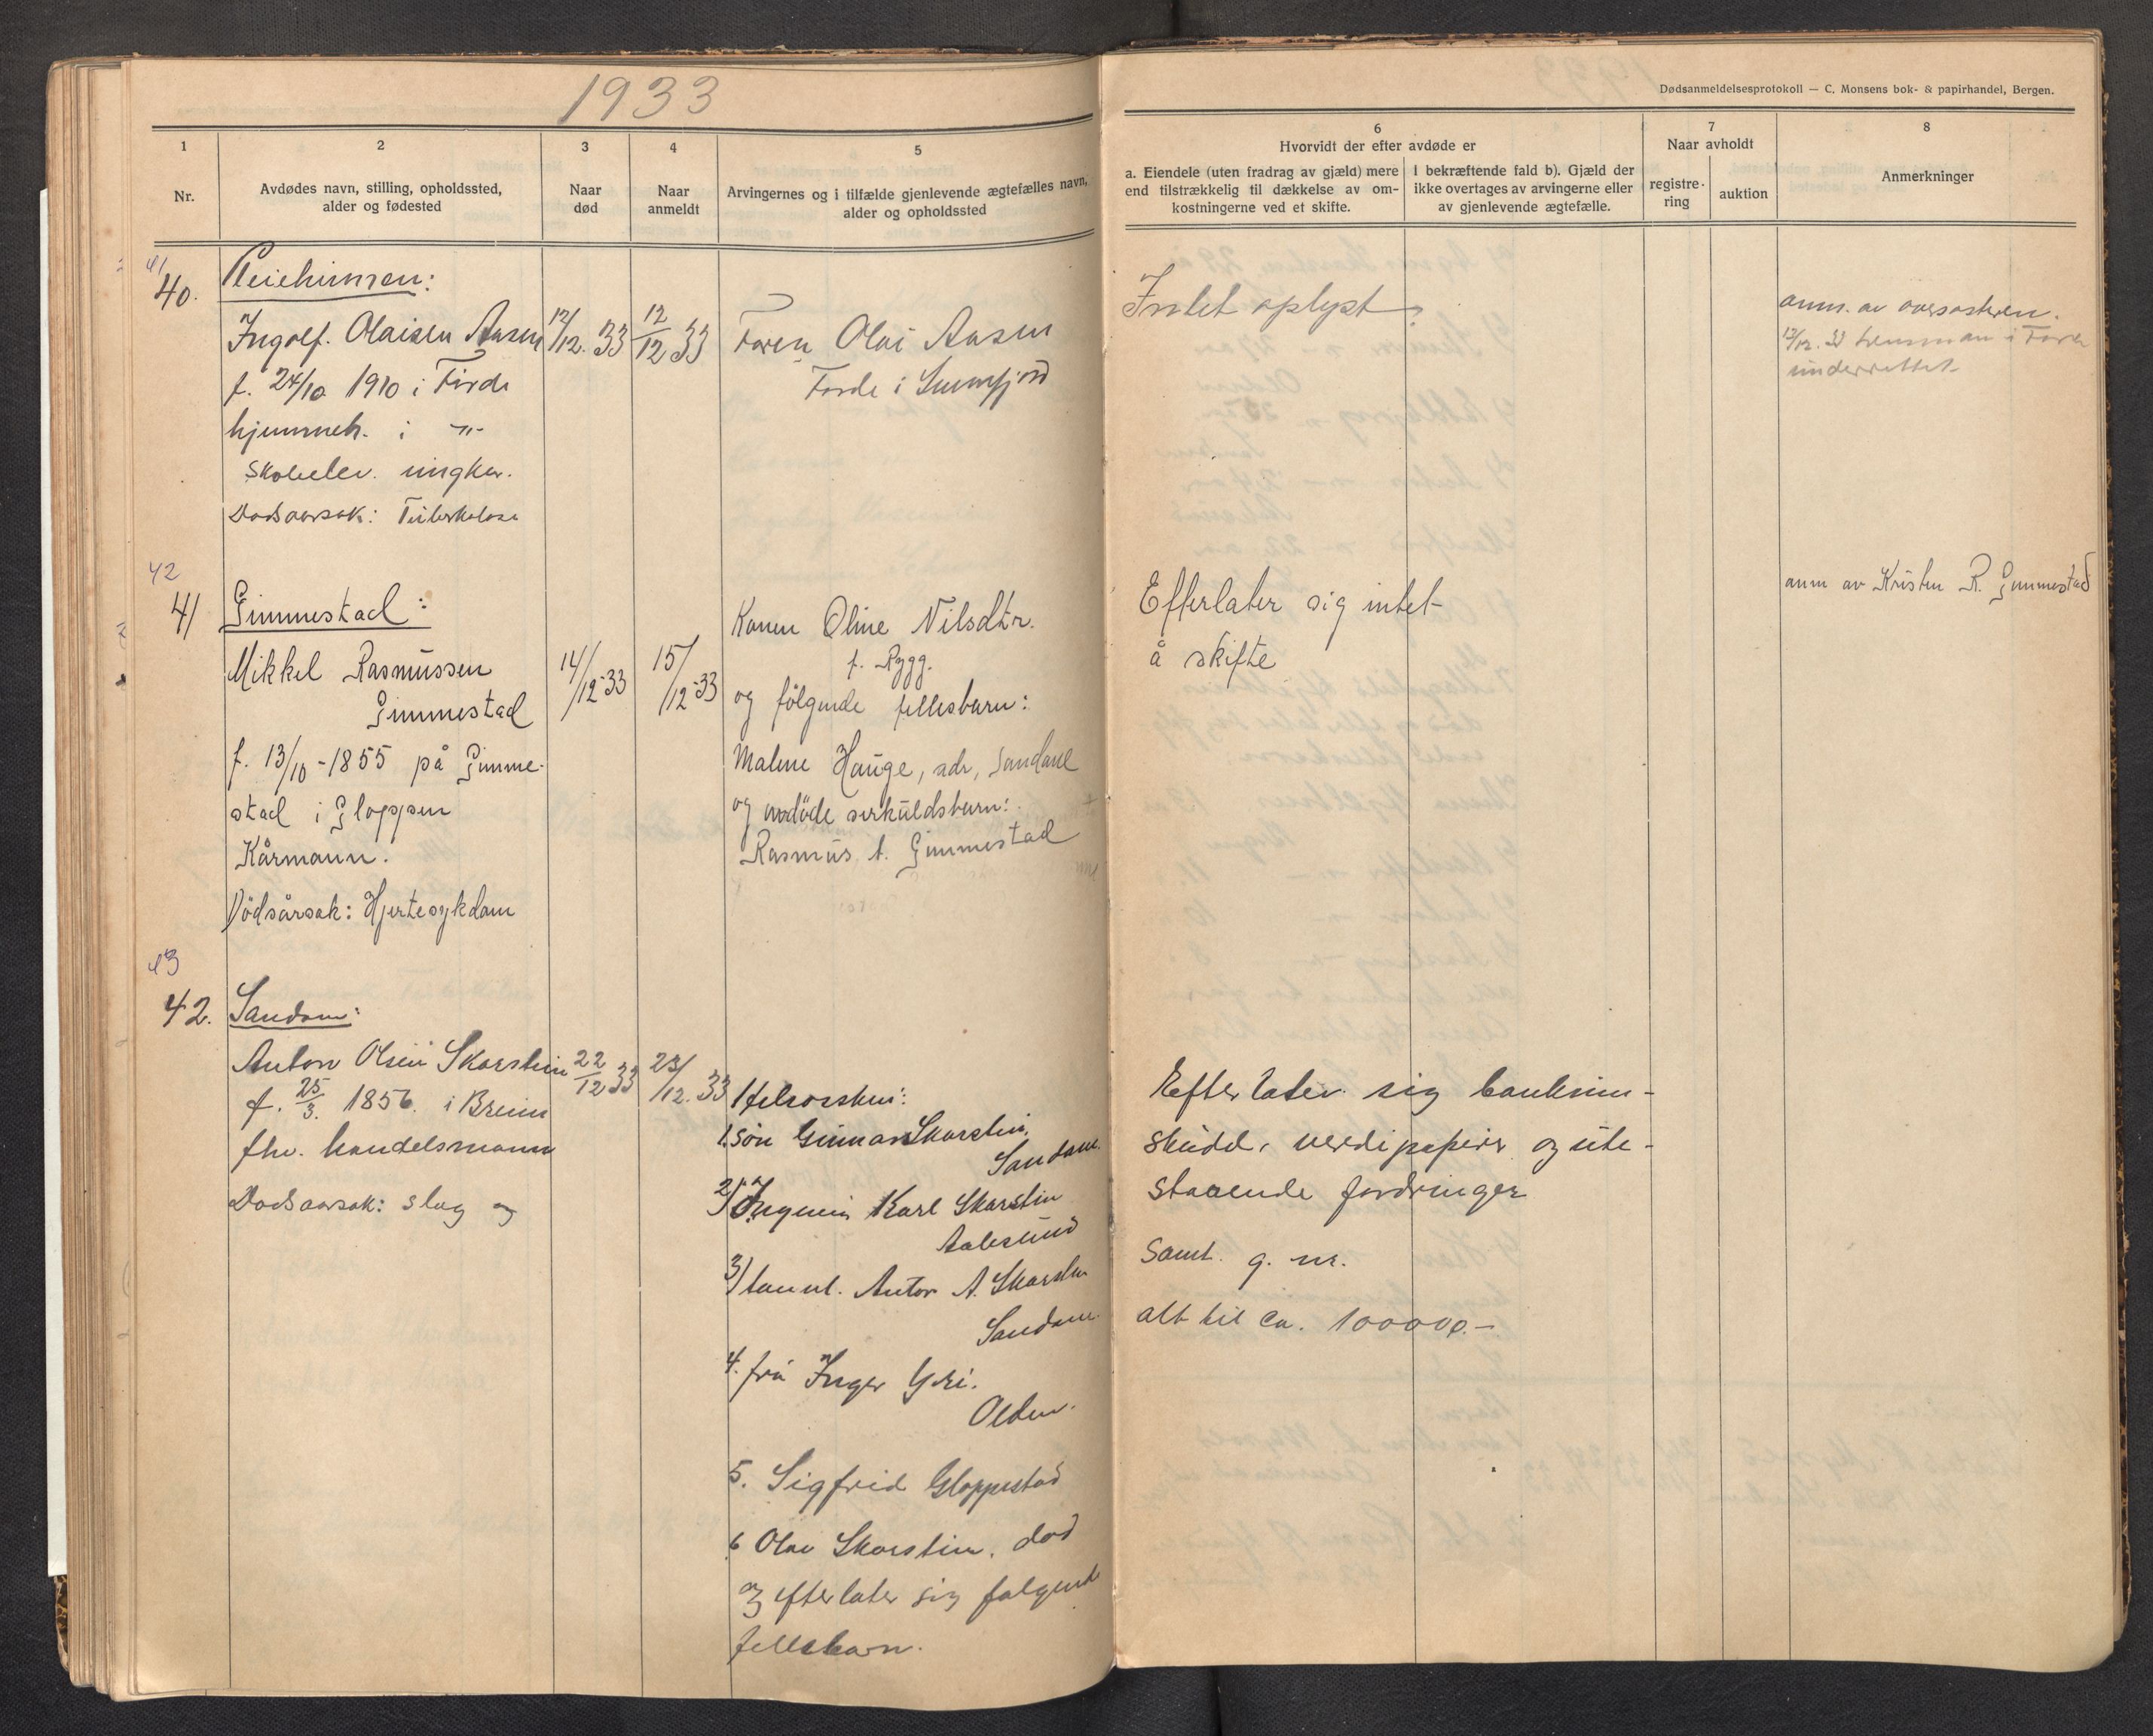 1933
Dødsanmeldelsesprotokoll — C. Monsens bok- & papirhandel, Bergen.
1
Nr.
2
Avdødes navn, stilling, opholdssted,
alder og fødested
3
Naar
død
4
Naar
anmeldt
5
Arvingernes og i tilfælde gjenlevende ægtefælles navn,
alder og opholdssted
6
Hvorvidt der efter avdøde er
a. Eiendele (uten fradrag av gjæld) mere
end tilstrækkelig til dækkelse av om-
kostningerne ved et skifte.
I bekræftende fald b). Gjæld der
ikke overtages av arvingerne eller
av gjenlevende ægtefælle.
7
Naar avholdt
registre-
ring
auktion
8
Anmerkninger
41
40.
Pleiehimen:
Ingolf. Olaisen Aasen
f. 24/10 1910 i Förde
hjemmeh. i -"-
Skoleelev. ungkar.
Dødsaarsak: Tuberkolose
12/12. 33
12/12 33
Faren Olai Aasen
Förde i Sunnfjord
Intet oplyst
anm. av oversøsteren.
12/12. 33 Lensman i Förde
underrettet
42
41
Gimmestad:
Mikkel Rasmussen
Gimmestad
f. 13/10-1855 på Gimme-
stad i Gloppen
Kårmann.
Dödsårsak: Hjertesykdom
14/12-33
15/12-33
Konen Oline Nilsdtr.
f. Rygg.
og fölgende fellesbarn:
Malene Hauge, adr, Sandane
og avdöde særkuldsbarn:
Rasmus Gimmestad
Efterlater sig intet
å skifte
anm av Kristen R. Gimmestad
43
42.
Sandane:
Anton Olsen Skarstein
f. 25/3. 1856. i Breim
fhv. handelsmann
Dødsaarsak: slag og
22/12 33
23/12. 33
Helsøsken:
1. søn Gunnar Skarstein,
Sandane.
2) Ingeniør Karl Skarstein
Aalesund
3) tannl. Anton A. Skarstein
Sandane.
4. fru Inger Yri.
Olden.
5. Sigfrid Gloppestad
6 Olav Skarstein. død
og efterlater sig følgende
fellsbarn.
Efterlater sig bankinn-
skudd, verdipapirer og ute-
staaende fordringer
samt. g. nr.
alt til ca. 100000.-